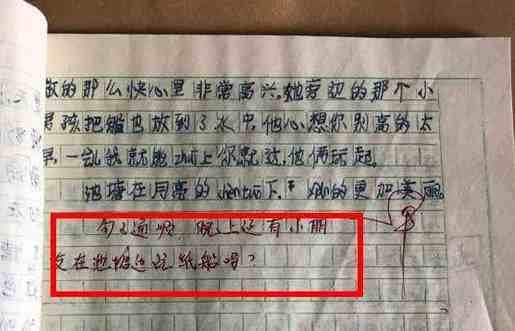 的那么快心里非常高兴.她旁边的那个小
男孩把船也放到了水中.他心想你别高的太
早.一会我就能zhui上你就这.他俩玩起.
池塘在月亮的chentuo下. xian的更加美丽
句子通顺 晚上还有小朋
友在池塘边玩纸船吗?
B